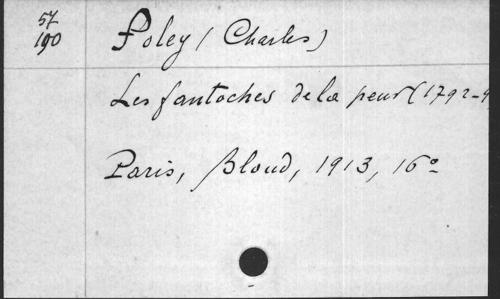 57
190
Foley (Charles)
Les fantoches de la peur (1792-9
Paris, Bloud, 1913, 16º